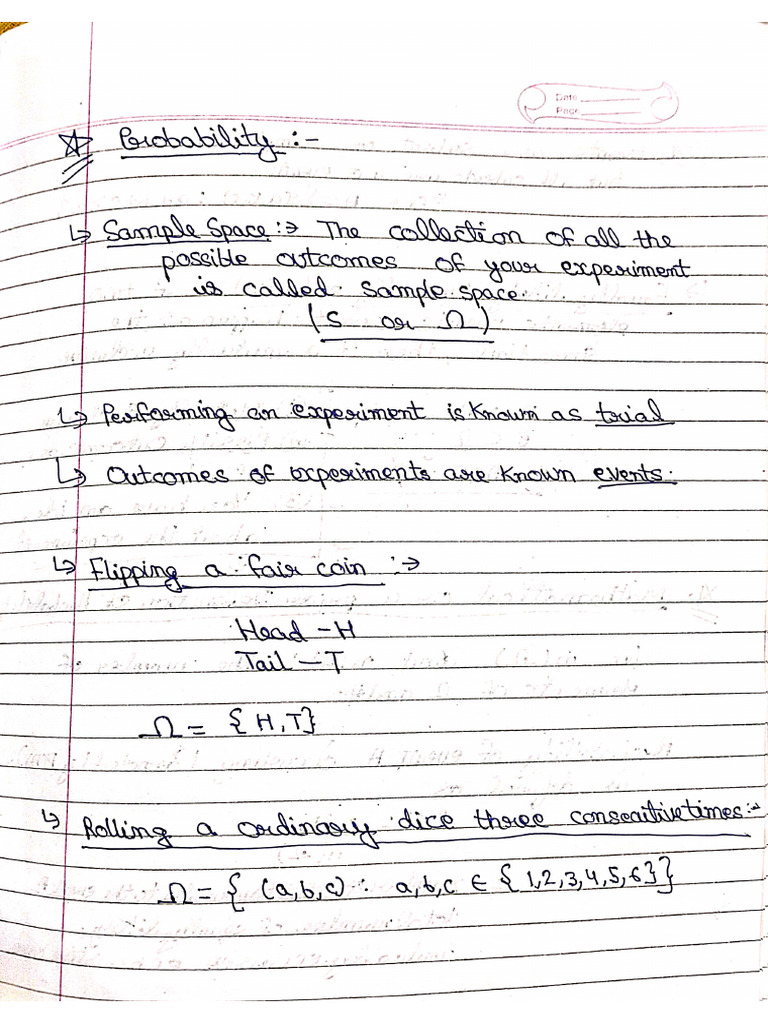 Date
Page
Probability :-
↳ Sample Space :→ The collection of all the
possible outcomes of your experiment
is called sample space.
(S or Ω)
↳ Performing an experiment is known as trial
↳ Outcomes of experiments are known events.
↳ Flipping a fair coin :→
Head - H
Tail - T
Ω = {H,T}
↳ Rolling a ordinary dice three consecutive times :-
Ω = { (a,b,c) : a,b,c ∈ {1,2,3,4,5,6}}